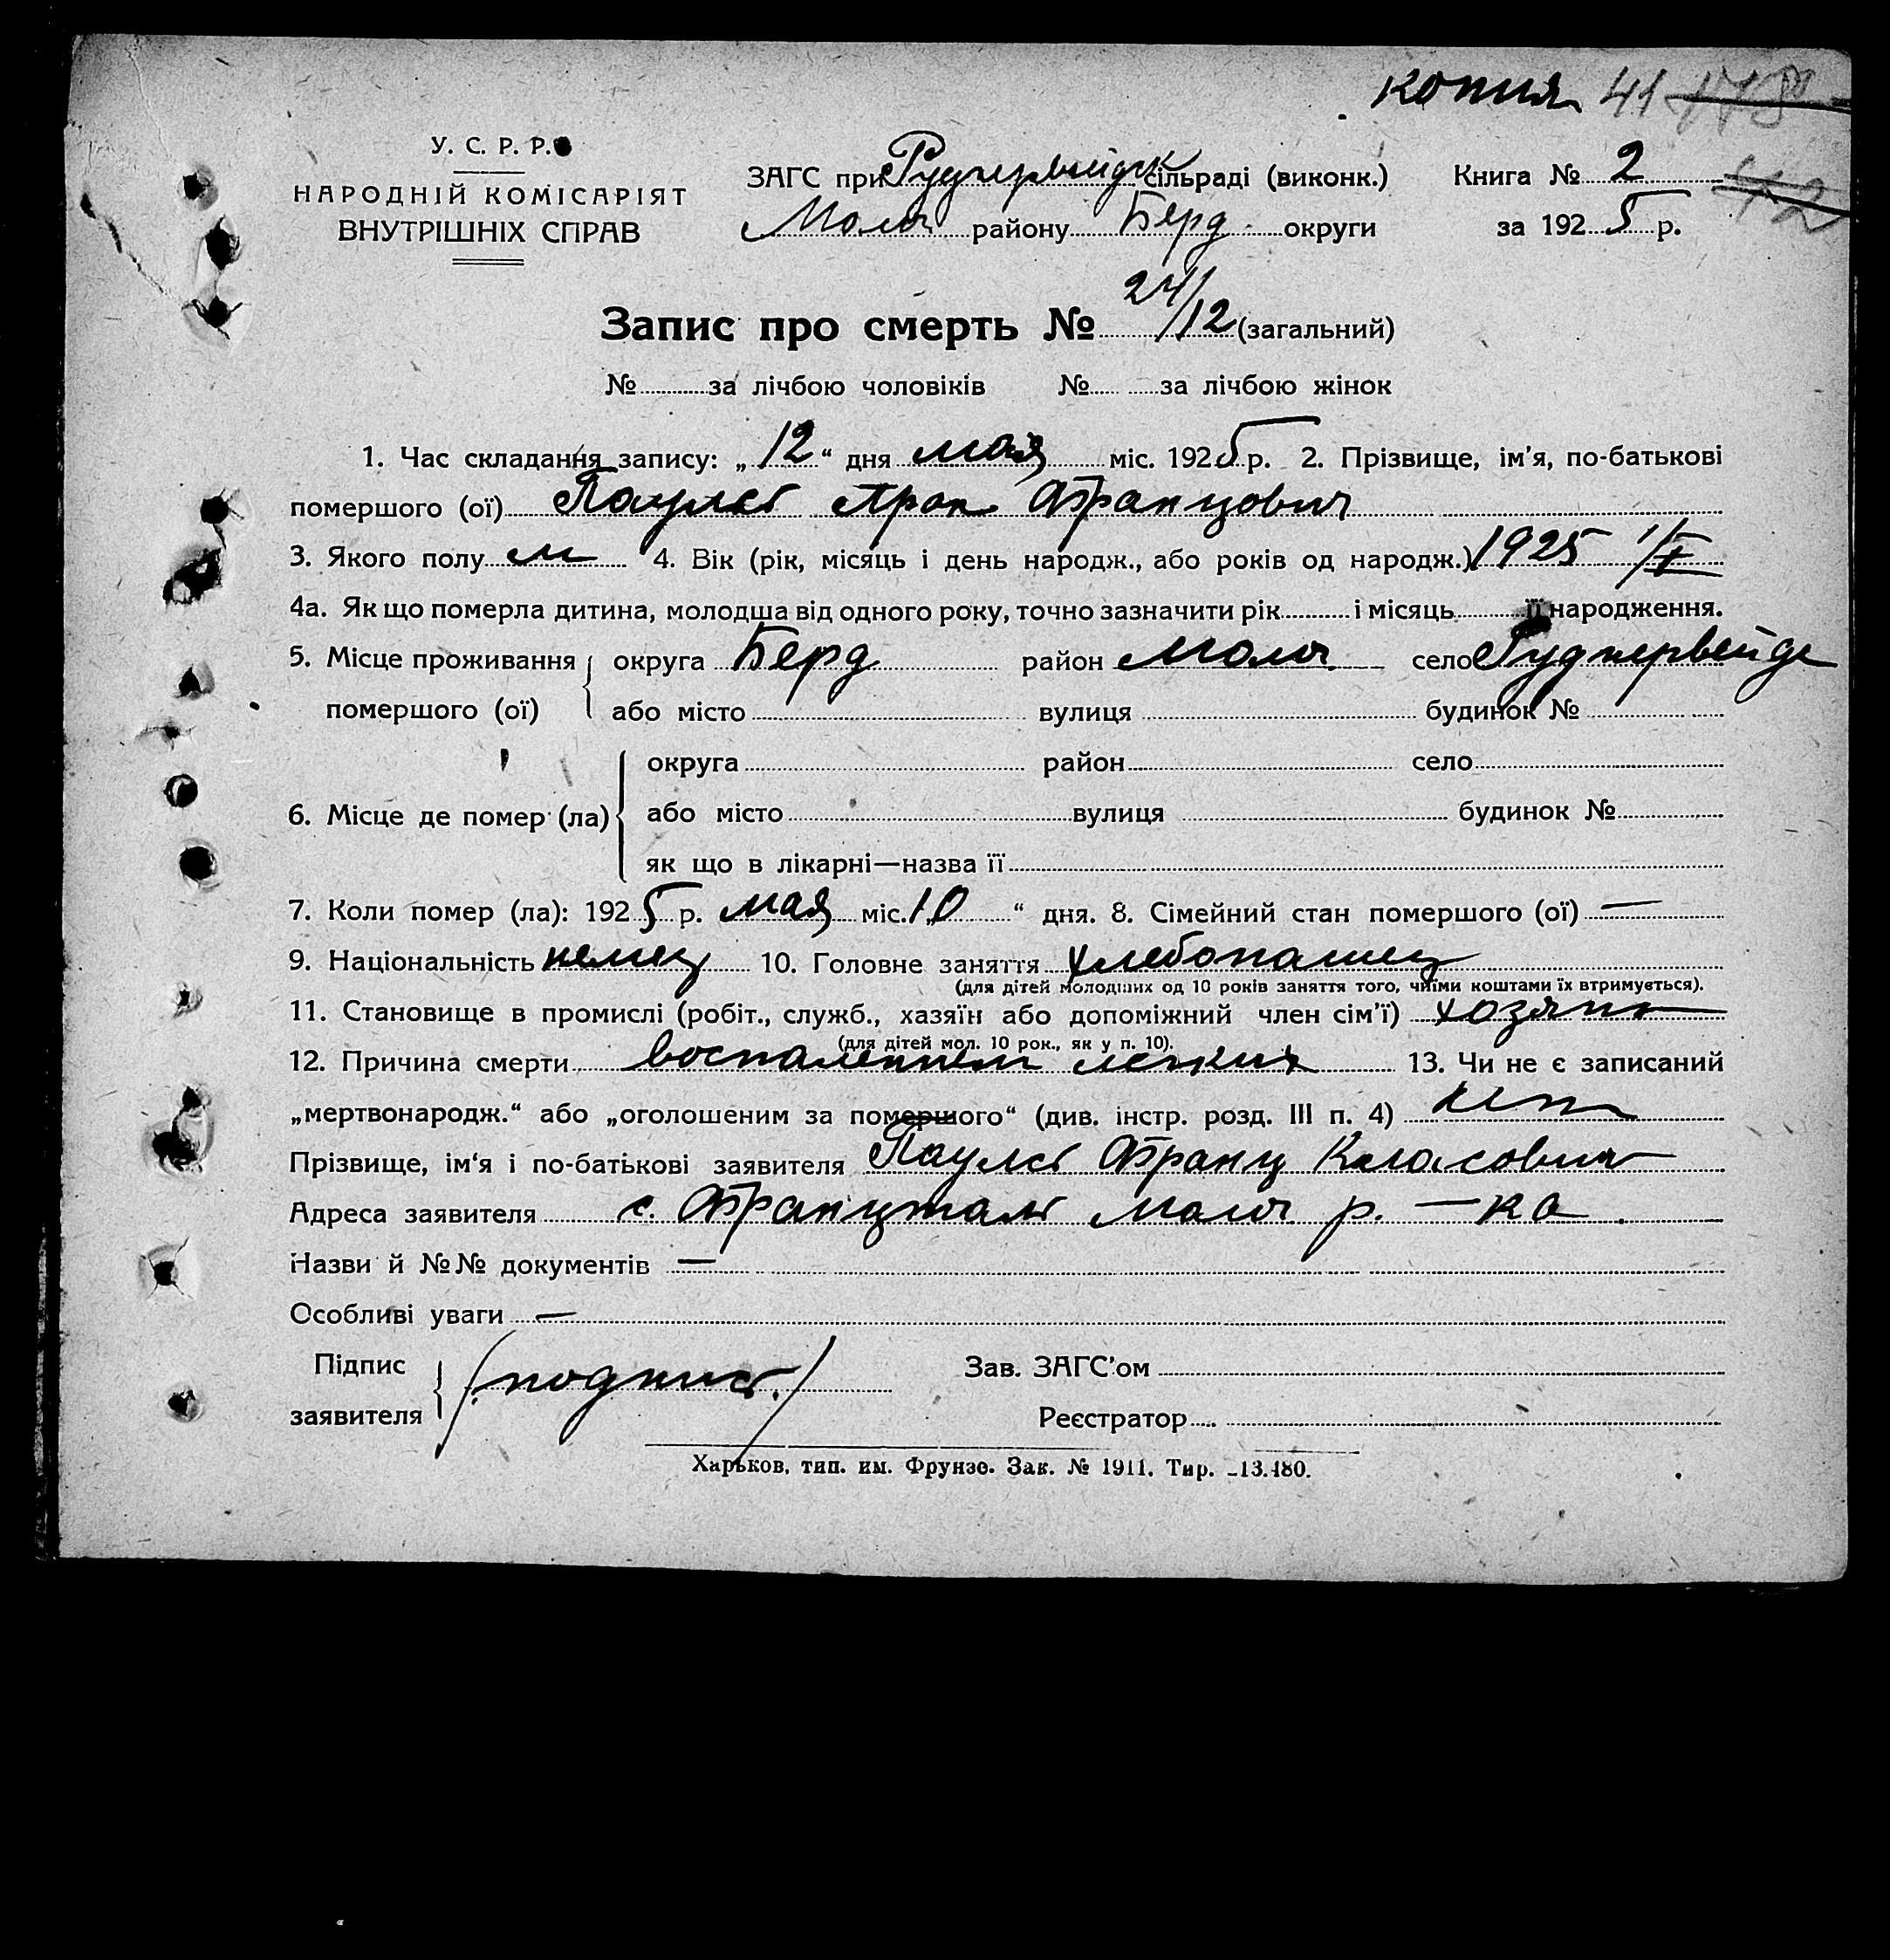 копия 41
У. С. Р. Р.
НАРОДНІЙ КОМІСАРІЯТ
ВНУТРІШНІХ СПРАВ
ЗАГС при Руднервейдск сільраді (виконк.)
Молоч району Берд. округи
Книга № 2
за 1925 р.
Запис про смерть № 24/12 (загальний)
№ за лічбою чоловіків № за лічбою жінок
1. Час складання запису: „12“ дня мая міс. 1925 р. 2. Прізвище, ім'я, по-батькові
помершого (ої) Паульс Арон Францович
3. Якого полу м 4. Вік (рік, місяць і день народж., або років од народж.) 1925 1/I
4а. Як що померла дитина, молодша від одного року, точно зазначити рік і місяць її народження.
5. Місце проживання помершого (ої) округа Берд район Молоч село Руднервейде
або місто вулиця будинок №
6. Місце де помер (ла) округа район село
або місто вулиця будинок №
як що в лікарні—назва її
7. Коли помер (ла): 1925 р. мая міс. „10“ дня. 8. Сімейний стан помершого (ої) —
9. Національність немец 10. Головне заняття хлебопашец
(для дітей молодших од 10 років заняття того, чиїми коштами їх втримується).
11. Становище в промислі (робіт., служб., хазяїн або допоміжний член сім'ї) хозяин
(для дітей мол. 10 рок., як у п. 10).
12. Причина смерти воспалением легких 13. Чи не є записаний
„мертвонародж.“ або „оголошеним за помершого“ (див. інстр. розд. III п. 4) нет
Прізвище, ім'я і по-батькові заявителя Паульс Франц Классович
Адреса заявителя с. Францталь Молоч р.—ка
Назви й №№ документів —
Особливі уваги —
Підпис заявителя /подпись./
Зав. ЗАГС'ом
Реєстратор
Харьков, тип. им. Фрунзе. Зак. № 1911. Тир. 13.480.